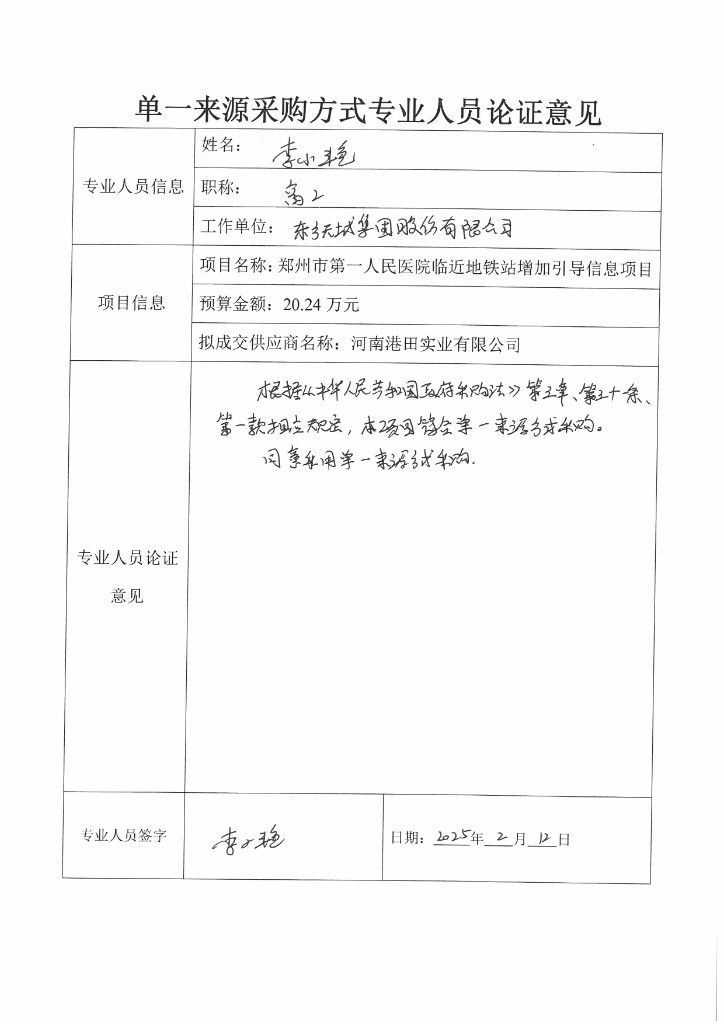 单一来源采购方式专业人员论证意见
专业人员信息
姓名：李小艳
职称：高工
工作单位：东方天城集团股份有限公司
项目信息
项目名称：郑州市第一人民医院临近地铁站增加引导信息项目
预算金额：20.24 万元
拟成交供应商名称：河南港田实业有限公司
专业人员论证
意见
根据《中华人民共和国政府采购法》第三章、第三十条、
第一款相应规定，本项目符合单一来源方式采购。
同意采用单一来源方式采购.
专业人员签字
李小艳
日期：2025年 2 月 12 日